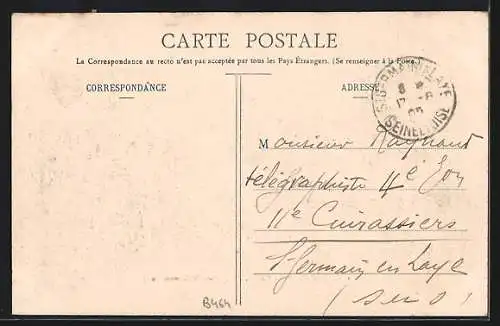 CARTE POSTALE
La Correspondance au recto n'est pas acceptée par tous les Pays Étrangers. (Se renseigner à la Poste.)
CORRESPONDANCE
ADRESSE
ST GERMAIN EN LAYE
17 -8
SEINE ET OISE
Monsieur Raynaud
télégraphiste 4e Eon
11e Cuirassiers
St Germain en Laye
(S et O)
B464